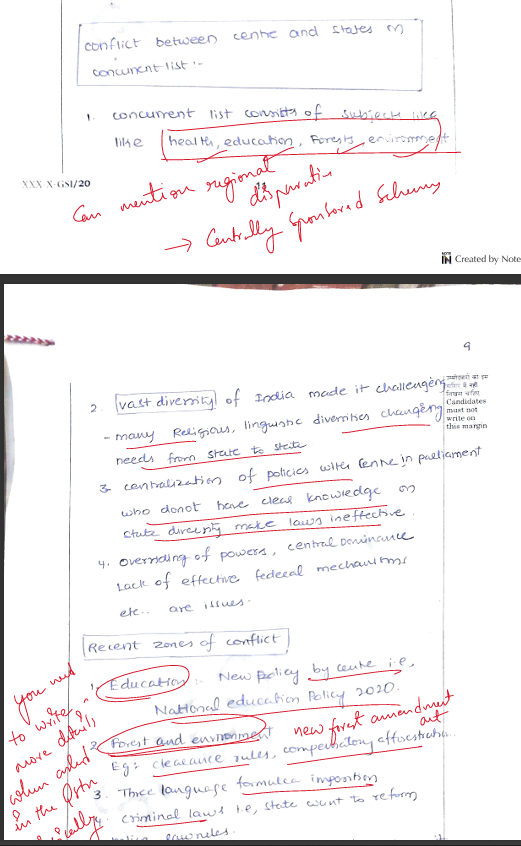 conflict between centre and states on
concurrent list :-
1. concurrent list consists of subjects like
like health, education, Forests, environment
XXX X-GSI/20
Can mention regional
disparities
→ Centrally Sponsored Schemes
Created by Note
9
उम्मीदवारों को इस
हाशिए में नहीं
लिखना चाहिए
Candidates
must not
write on
this margin
2. vast diversity of India made it challenging
- many Religious, linguistic diversities changing
needs from state to state
3. centralization of policies with Centre in parliament
who donot have clear knowledge on
state diversity make laws ineffective.
4. overriding of powers, central Dominance
Lack of effective federal mechanisms
etc.. are issues.
Recent zones of conflict
1. Education :- New policy by centre i.e,
National education Policy 2020.
2. Forest and environment new forest amendment
act
Eg: clearance rules, compensatory afforestation.
3. Three language formulae imposition
4. criminal laws i.e, state want to reform
rules.
you need
to write
more details
when asked
in the Qstn